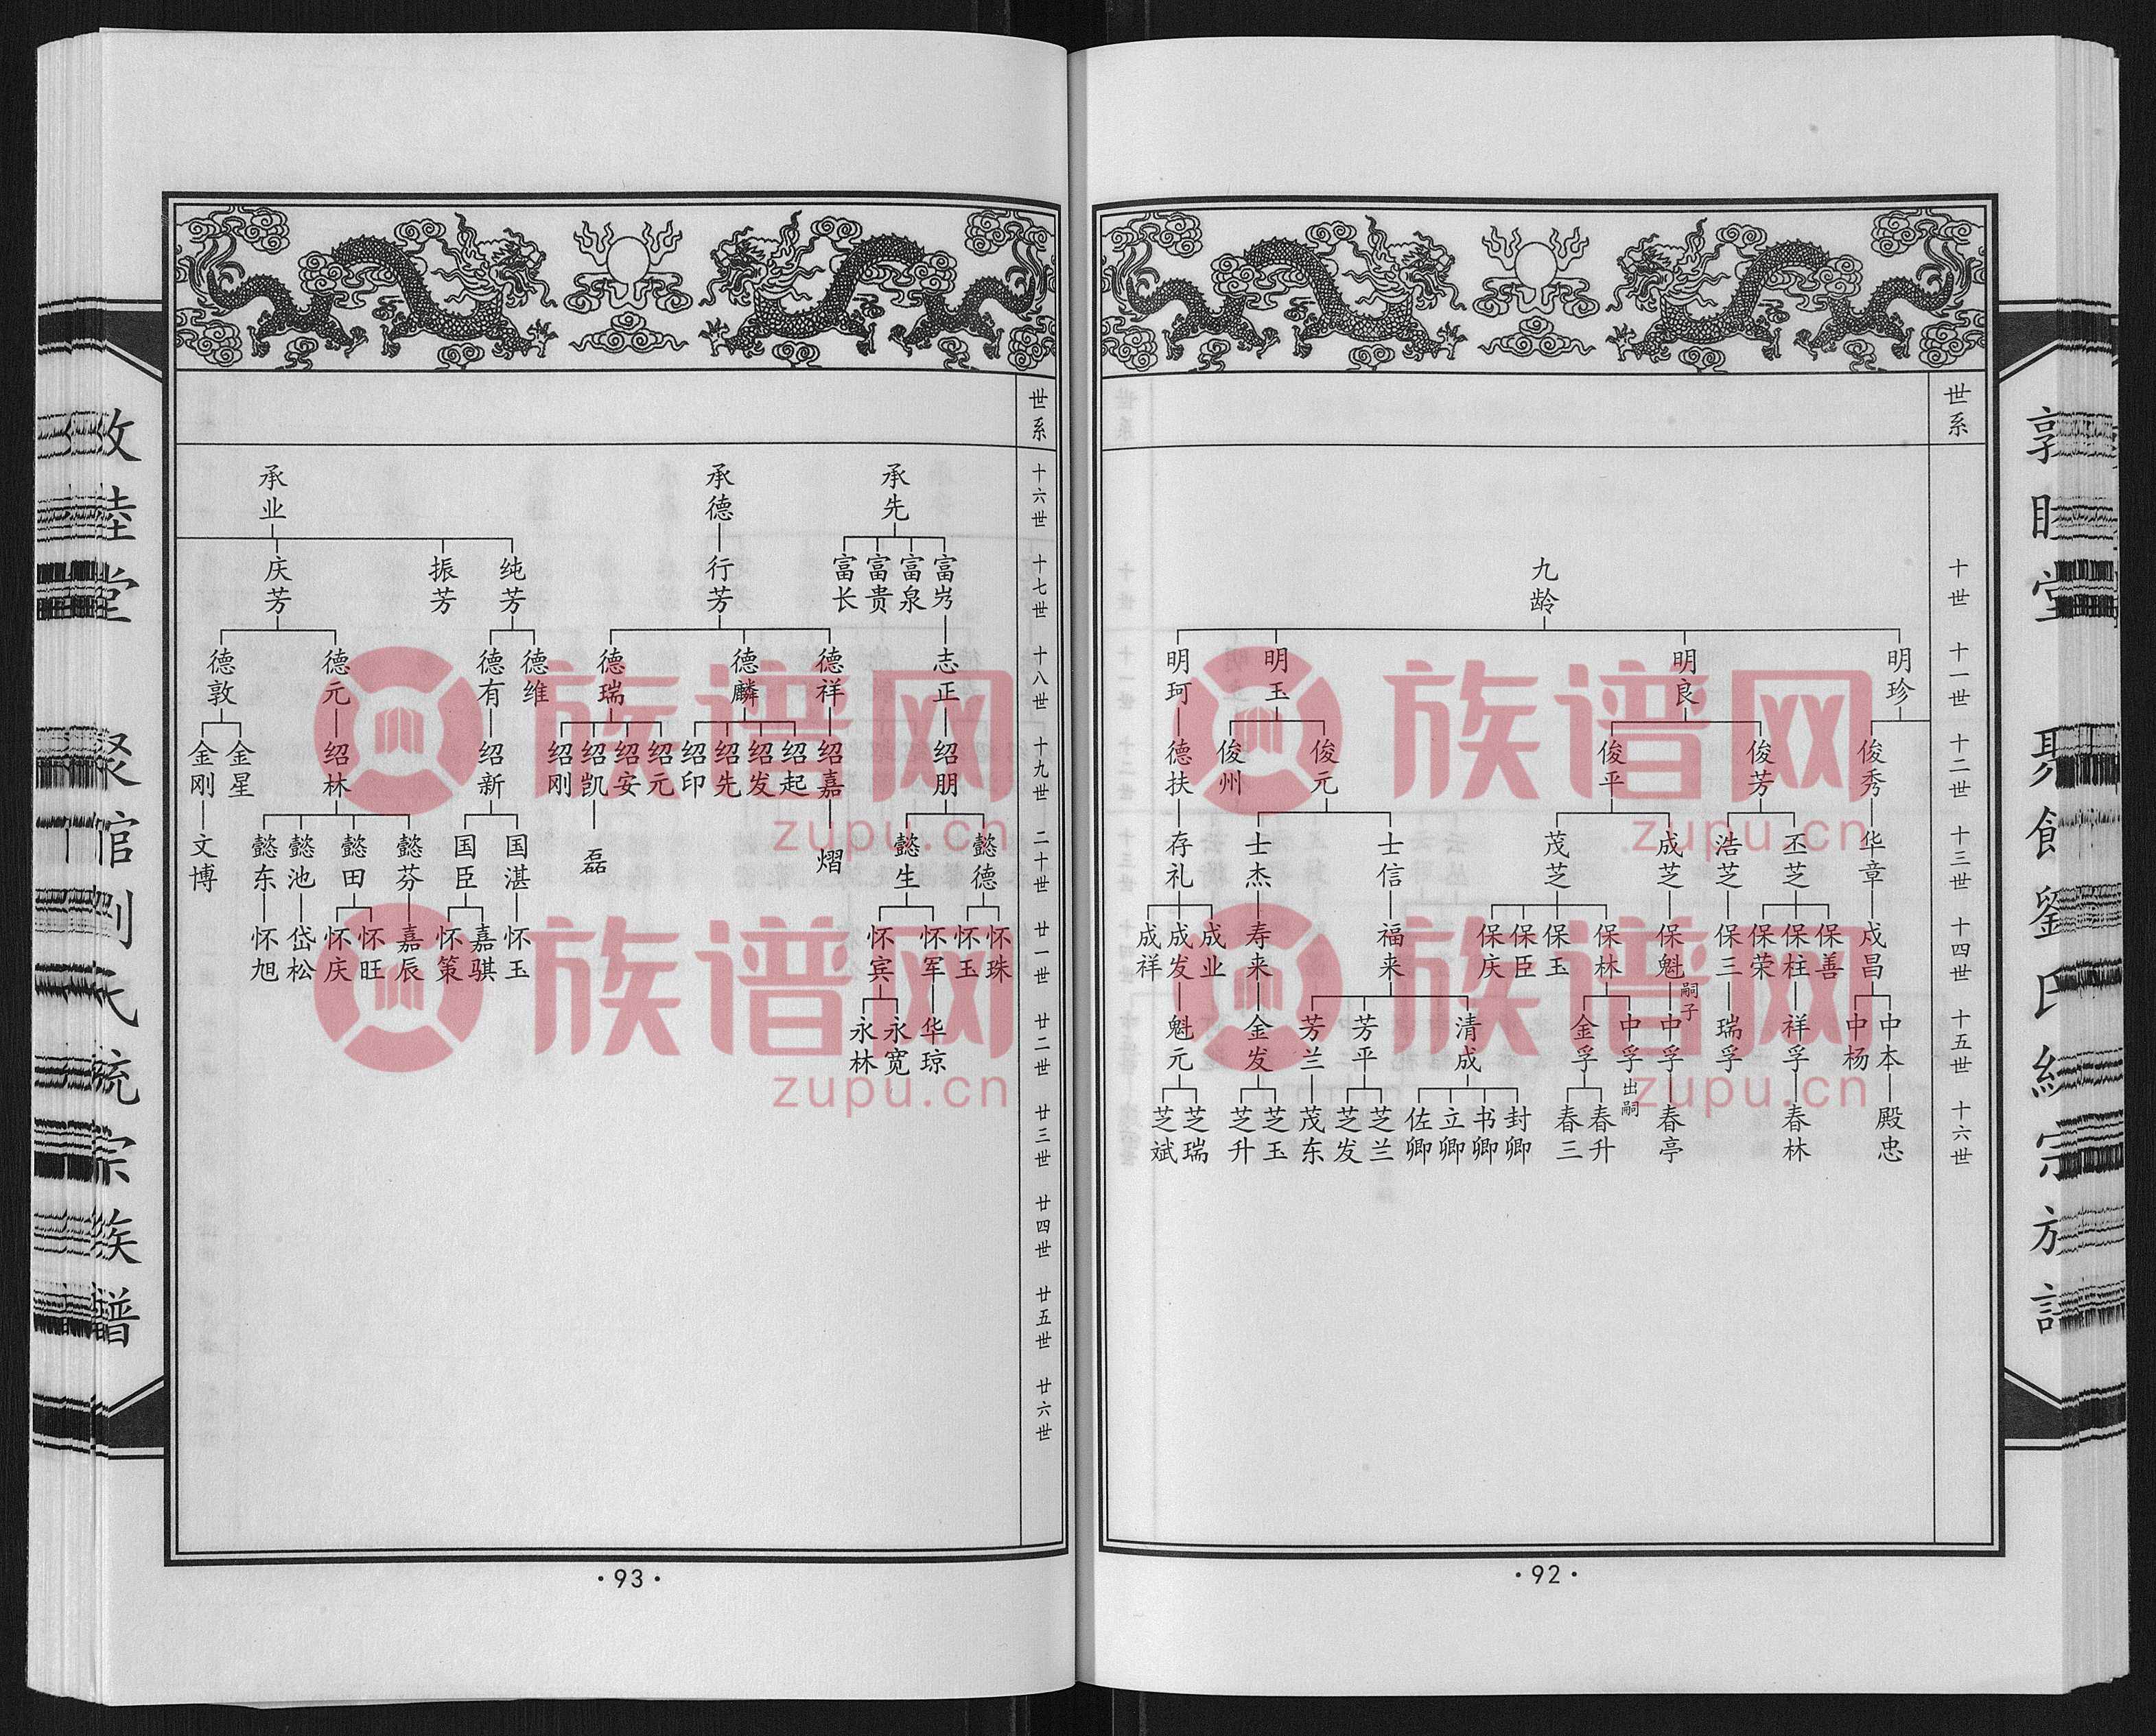 世系
十世
十一世
十二世
十三世
十四世
十五世
十六世
九龄
明珍
明良
明玉
明珂
俊秀
俊芳
俊平
俊元
俊州
德扶
华章
丕芝
浩芝
成芝
茂芝
士信
士杰
存礼
成昌
保善
保柱
保荣
保三
保魁
保林
保玉
保臣
保庆
福来
寿来
成业
成发
成祥
嗣子
中本
中杨
祥孚
瑞孚
中孚
中孚
出嗣
金孚
清成
芳平
芳兰
金发
魁元
殿忠
春林
春亭
春升
春三
封卿
书卿
立卿
佐卿
芝兰
芝发
茂东
芝玉
芝升
芝瑞
芝斌
·92·
世系
十六世
十七世
十八世
十九世
二十世
廿一世
廿二世
廿三世
廿四世
廿五世
廿六世
承先
承德
承业
富岁
富泉
富贵
富长
行芳
纯芳
振芳
庆芳
志正
德祥
德麟
德瑞
德维
德有
德元
德敦
绍朋
绍嘉
绍起
绍发
绍先
绍印
绍元
绍安
绍凯
绍刚
绍新
绍林
金星
金刚
懿德
懿生
熠
磊
国湛
国臣
懿芬
懿田
懿池
懿东
文博
怀珠
怀玉
怀军
怀宾
怀玉
嘉骐
怀策
嘉辰
怀旺
怀庆
岱松
怀旭
华琼
永宽
永林
·93·
族谱网
zupu.cn
族谱网
zupu.cn
族谱网
zupu.cn
族谱网
zupu.cn